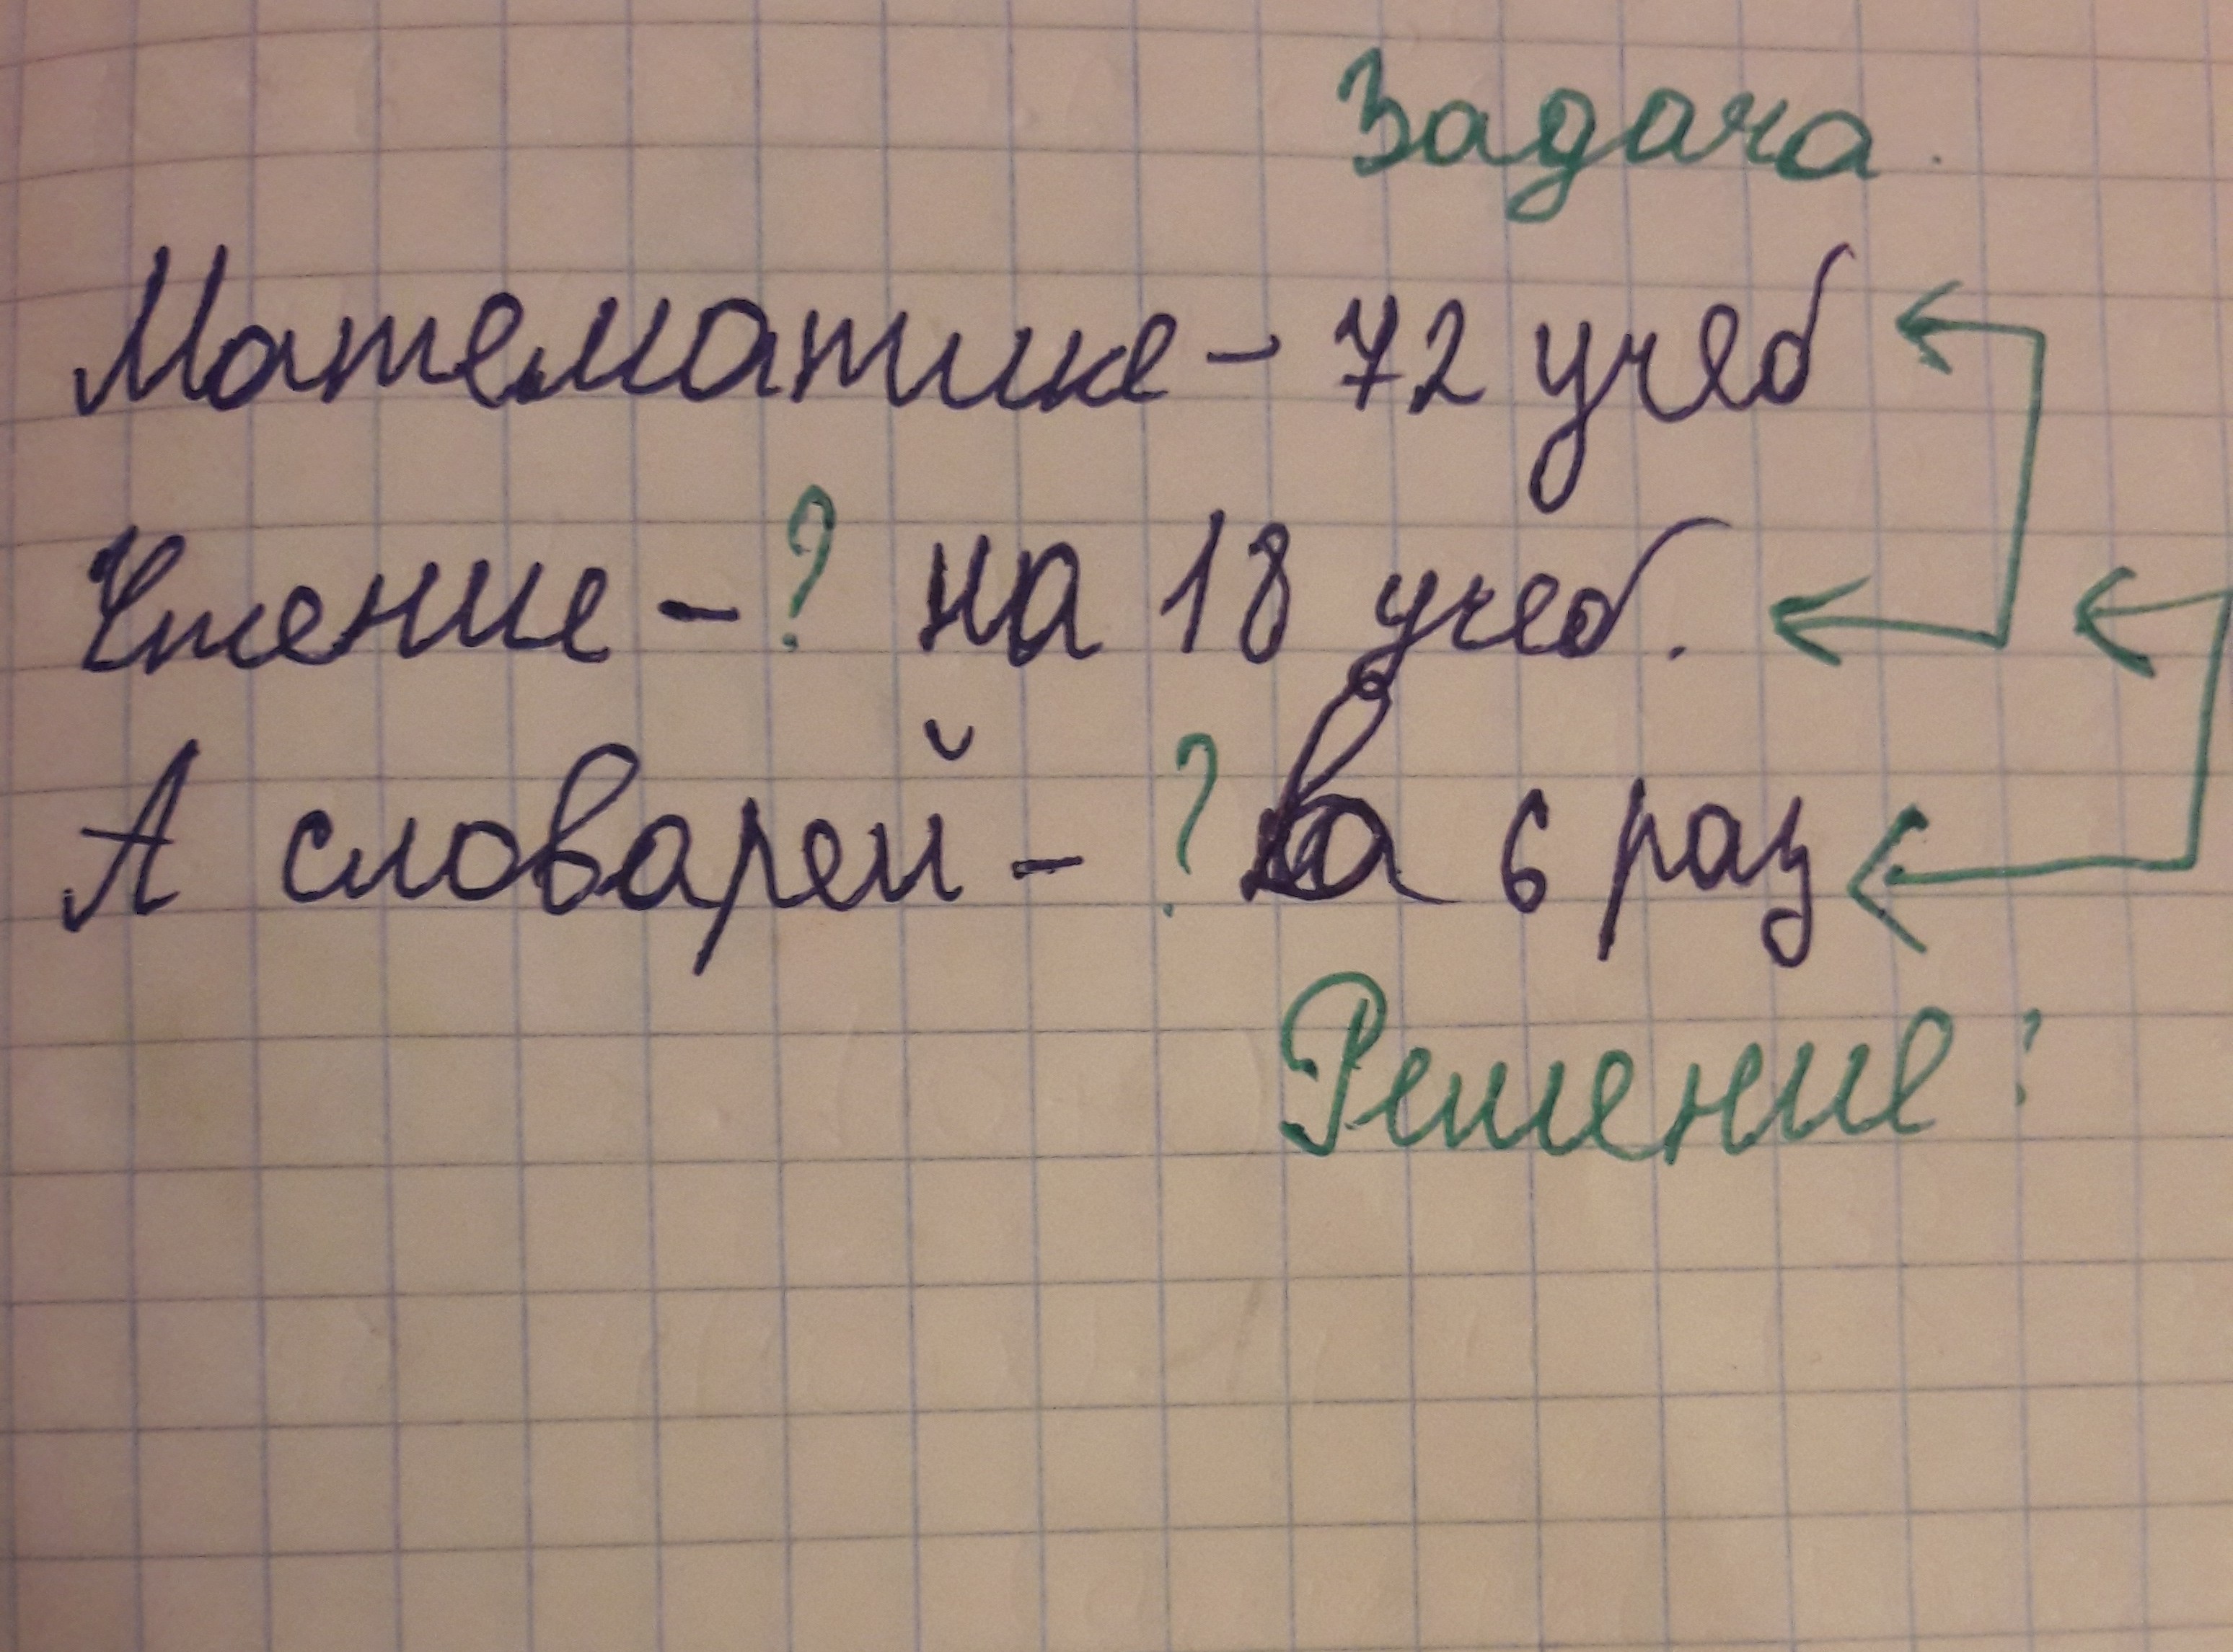 Задача.
Математике - 72 учеб
Чтение - ? на 18 учеб.
А словарей - ? в 6 раз
Решение: